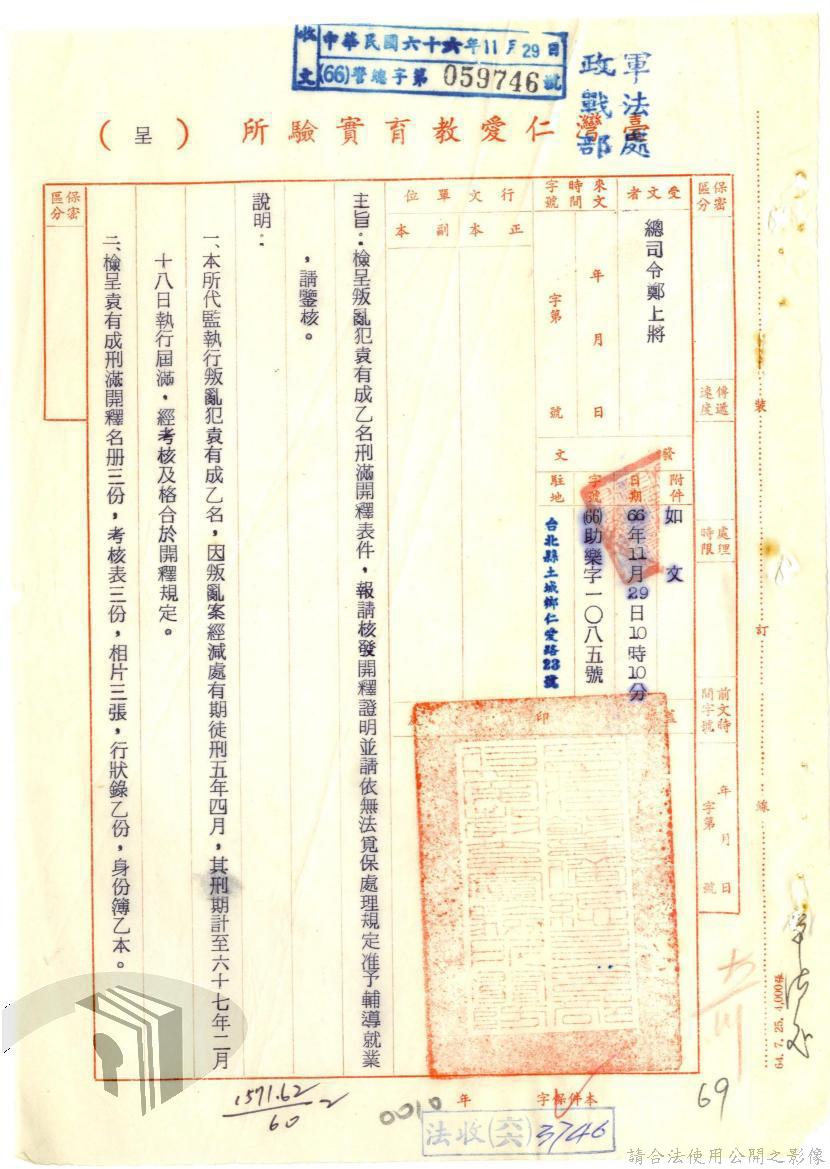 收文
中華民國六十六年11月29日
(66)警總字第059746號
軍法處
政戰部
臺灣仁愛教育實驗所(呈)
保密區分
傳遞速度
處理時限
前文時間字號
年月日
字第號
受文者
總司令鄭上將
附件
如文
來文
時間
字號
年月日
字第號
發文
日期
66年11月29日10時10分
字號
(66)助樂字一〇八五號
駐地
台北縣土城鄉仁愛路23號
行文單位
正本
副本
印
主旨:檢呈叛亂犯袁有成乙名刑滿開釋表件,報請核發開釋證明並請依無法覓保處理規定准予輔導就業
,請鑒核。
說明:
一、本所代監執行叛亂犯袁有成乙名,因叛亂案經減處有期徒刑五年四月,其刑期計至六十七年二月
十八日執行屆滿,經考核及格合於開釋規定。
二、檢呈袁有成刑滿開釋名册三份,考核表三份,相片三張,行狀錄乙份,身份簿乙本。
保密區分
裝
訂
線
64.7.25.4,000本
本件保存 年
0010
1571.62
60
2
法收(六六)3746
69
請合法使用公開之影像